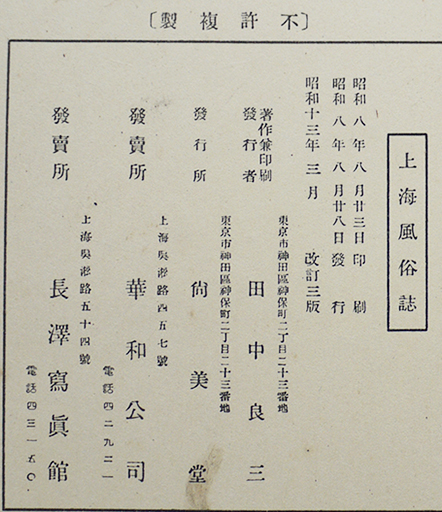 〔不許複製〕
上海風俗誌
昭和八年八月廿三日印刷
昭和八年八月廿八日發行
昭和十三年三月 改訂三版
著作兼印刷
發行者
東京市神田區神保町二丁目二十三番地
田中良三
發行所
東京市神田區神保町二丁目二十三番地
尙美堂
發賣所
上海吳淞路四五七號
華和公司
電話四二九二一
發賣所
上海吳淞路五十四號
長澤寫眞館
電話四三一五〇